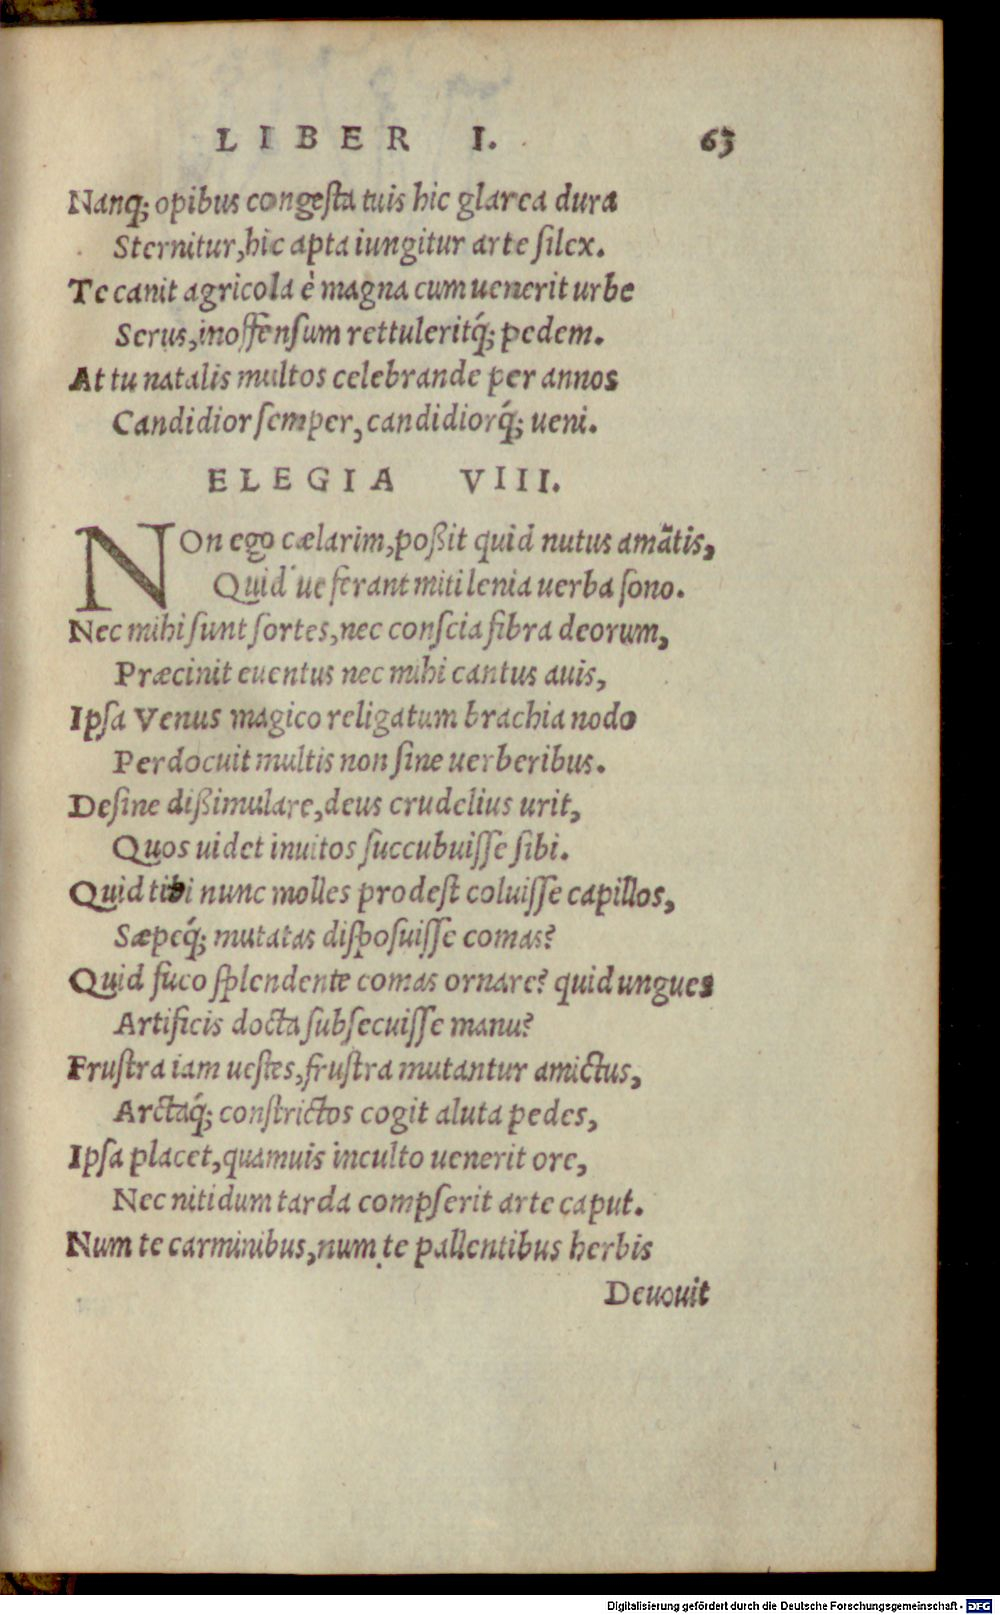 LIBER I. 63
Nanq; opibus congesta tuis hic glarea dura
Sternitur, hic apta iungitur arte silex.
Te canit agricola è magna cum uenerit urbe
Serus, inoffensum rettuleritq́; pedem.
At tu natalis multos celebrande per annos
Candidior semper, candidiorq́; ueni.
ELEGIA VIII.
NOn ego cælarim, poßit quid nutus amãtis,
Quid ue ferant miti lenia uerba sono.
Nec mihi sunt sortes, nec conscia fibra deorum,
Præcinit euentus nec mihi cantus auis,
Ipsa Venus magico religatum brachia nodo
Perdocuit multis non sine uerberibus.
Desine dißimulare, deus crudelius urit,
Quos uidet inuitos succubuisse sibi.
Quid tibi nunc molles prodest coluisse capillos,
Sæpeq́; mutatas disposuisse comas?
Quid fuco splendente comas ornare? quid ungues
Artificis docta subsecuisse manu?
Frustra iam uestes, frustra mutantur amictus,
Arctaq́; constrictos cogit aluta pedes,
Ipsa placet, quamuis inculto uenerit ore,
Nec nitidum tarda compserit arte caput.
Num te carminibus, num te pallentibus herbis
Deuouit
Digitalisierung gefördert durch die Deutsche Forschungsgemeinschaft - DFG